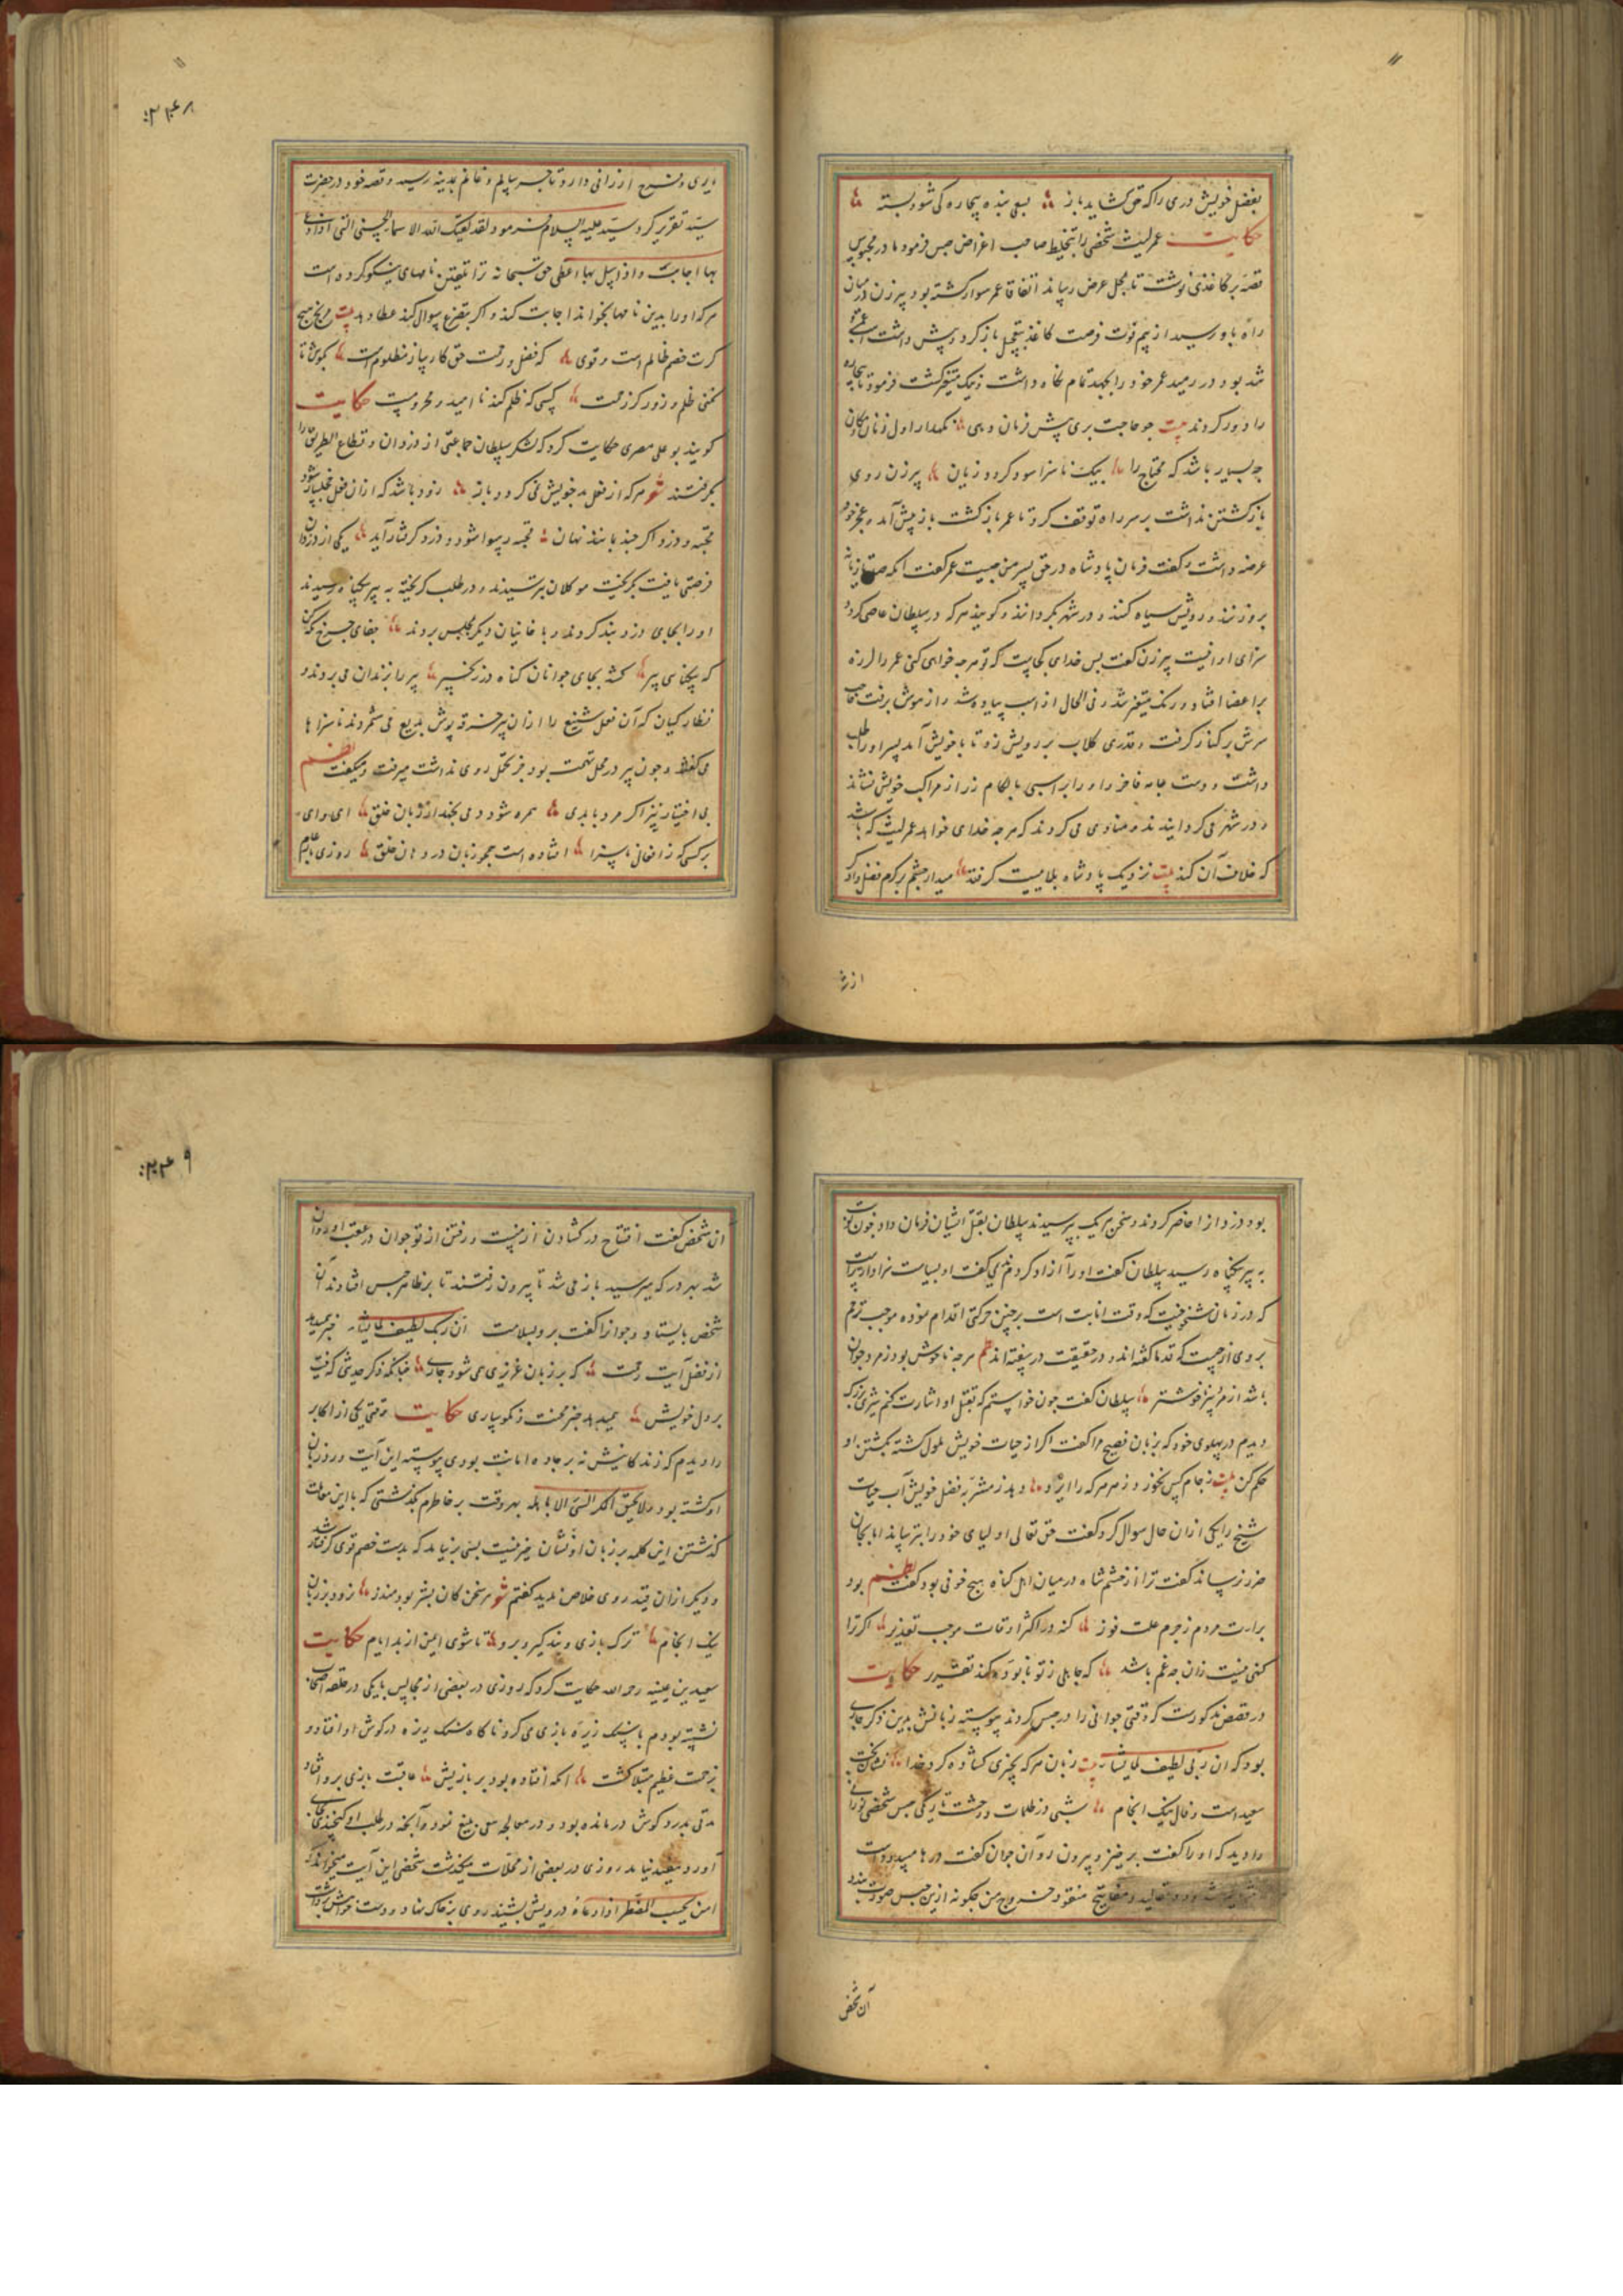 بفضل خویش دری را که حق کشاید باز بسعی بنده بیچاره کی شود بسته
حکایت عمر لیث شخصی را بتخلیط صاحب اغراض حبس فرمود مادر محبوس
قصه بر کاغذی نوشت تا بمحل عرض رساند اتفاقا عمر سوار کشته بود پیر زن در میان
راه باو رسید از بیم فوت فرصت کاغذ بتعجیل باز کرد و پیش داشت
شد بود در رمید عمر خود را بجهد تمام نکاه داشت و نیک متغیر کشت فرمود تا بیچاره
را دور کردند بیت جو حاجت بری پیش فرمان دهی نکهدار اول زمان و مکان
چه بسیار باشد که محتاج را بیک ناسزا سود کردد زیان پیر زن روی
باز کشتن نداشت بر سر راه توقف کرد تا عمر باز کشت باز پیش آمد و عجز خود
عرضه داشت و کفت فرمان پادشاه در حق پسر من چیست عمر کفت آنکه صد تازیانه
بروز نند و رویش سیاه کنند و در شهر بکردانند و کویند هر که در سلطان عاصی کردد
سزای او اینست پیر زن کفت پس خدای کجاست که تو هر چه خواهی کنی عمر را لرزه
بر اعضا افتاد و رنک متغیر شد و فی الحال از اسب پیاده شد و از هوش برفت
سرش بر کنار کرفت و قدری کلاب بر رویش زد تا با خویش آمد پسر او را طلب
داشت و دست جامه فاخر داد و را بر اسبی با لکام زر از مراکب خویش نشاند
و در شهر می کردانیدند و منادی می کردند که هر چه خدای خواهد عمر لیث که باشد
که خلاف آن کند بیت نزدیک پادشاه بلا میست کرفته میدار چشم بر کرم فضل دادکر
از شر
۲۴۸
یری و شرح ارزانی دارد تاجر سالم و غانم بمدینه رسید و قصه خود در حضرت
سید تقریر کرد سید علیه السلام فرمود لقد لقنک الله الاسماء الحسنی التی اذا دعی
بها اجابت و اذا سئل بها اعطی حق سبحانه ترا تلقین نامهای نیکو کرده است
هر که او را بدین نامها بخواند اجابت کند و اکر بتضرع سوال کند عطا دهد بیت مرنج هیچ
کرت خصم ظالم است و قوی که فضل و رحمت حق کارساز مظلوم است بکوش تا
نکنی ظلم و زور کز رحمت کسی که ظلم کند نا امید و محرومست حکایت
کویند بو علی مصری حکایت کرد که لشکر سلطان جماعتی از دزدان و قطاع الطریق را
بکرفتند شعر هر که از فعل بد خویش نمی کردد باز زود باشد که از ان فعل خجلسار شود
قحبه و دزد اکر چند بمانند نهان قحبه رسوا شود و دزد کرفتار آید یکی از دزدان
فرصتی یافت بکریخت موکلان بترسیدند و در طلب کریخته به پیر بیکناه رسیدند
او را بجای دزد بند کردند و با خانیان دیکر بمجلس بردند جفای چرخ
که بیکناهی پیر کشد بجای جوانان کناه در زنجیر پیر را بزندان می بردند و
نظارکیان که آن فعل شنیع را از ان پیر خرقه پوش بدیع می شمردند ناسزاها
می کفتند و چون پیر در محل تهمت بود بجز تحمل روی نداشت میرفت و میکفت نظم
بی اختیار نیز اکر مرد با بدی همره شود دمی نجهد از زبان خلق ای وای
بر کسی که ز افعال ناسزا افتاده است همچو زبان در دهان خلق روزی
بود دزد از احاضر کردند و سخن هر یک بپرسیدند سلطان بقتل ایشان فرمان داد چون نوبت
به پیر بیکناه رسید سلطان کفت او را آزاد کردم ندیمی کفت او بسیاست سزاوارتر است
که در زمان شیخوخیت که وقت انابت است بر چنین حرکتی اقدام نموده موجب ترحم
بر وی از چیست که قدما کفته اند و در حقیقت در سفته اند نظم هر چه ناخوش بود ز مرد جوان
باشد از مرد پیر ناخوشتر سلطان کفت چون خواستم که بقتل او اشارت کنم شیری بزرک
دیدم در پهلوی خود که بزبان فصیح مرا کفت اکر از حیات خویش ملول کشته بکشتن او
حکم کن بیت ز جام کس نخورد زهر هر که را ایزد دهد ز مشربه فضل خویش آب حیات
شیخ را یکی از ان حال سوال کرد کفت حق تعالی اولیای خود را بترساند اما بجان
ضرر نرساند کفت ترا از خشم شاه در میان اهل کناه هیچ خوفی بود کفت نظم بود
برات مردم ز جرم علت فوز کنه در اکثر اوقات موجب تعذیر اکر ترا
کنهی نیست زان چه غم باشد که جاهلی ز تو نابوده کند تقریر حکایت
در قصص مذکورست که وقتی جوانی را در حبس کردند پیوسته زبانش بدین ذکر جاری
بود که ان ربی لطیف لما یشاء بیت زبان هر که بچیزی کشاده کرد خدا نشان بخت
سعید است و فال نیک انجام شبی در ظلمات وحشت تاریکی حبس شخصی نورانی
را دید که او را کفت برخیز و بیرون رو آن جوان کفت درها مسدود است
و مفاتیح مفقود خروج من چکونه ازین حبس صورت بندد
آن شخص
۲۴۹
ان شخص کفت افتتاح در کشادن از منست و رفتن از تو جوان در عقب او روان
شد بهر در که میرسید باز می شد تا بیرون رفتند تا بر ظاهر حبس افتادند آن
شخص بایستاد و جوانرا کفت برو بسلامت ان ربک لطیف لما یشاء خبر میدهد
از فضل آیت رحمت که بر زبان عزیزی همی شود جاری چنانکه ذکر حدیثی که رفت
بر دل خویش همیدهد خبر محنت و نکوساری حکایت وقتی یکی از اکابر
را دیدم که زندکانیش نه بر جاده امانت بودی پیوسته این آیت ورد زبان
او کشته بود و لا یحیق المکر السیئ الا باهله بهر وقت بر خاطرم بکذشتی که با این معاملت
کذشتن این کلمه بر زبان او نشان خیر نیست بسی بر نیامد که بدست خصم قوی کرفتار شد
و دیکر از ان قید روی خلاص ندید کفتم شعر هر سخن کان بشر بود مندو زود بر زبان
نیک انجام ترک بازی و پند کیر و برو تا شوی ایمن از بد ایام حکایت
سعید بن عیینه رحمه الله حکایت کرد که روزی در بعضی از مجالس با یکی در حلقه اصحاب
نشسته بودم با سنک زیزه بازی می کرد ناکاه سنک ریزه در کوش او افتاد و
بزحمت عظیم مبتلا کشت آنکه افتاده بود بر بازیش عاقبت بازی برو افتاد
مدتی بدرد کوش در مانده بود و در معالجه سعی بلیغ نمود و آنچه در طلب او کنجیدی بجای
آورد و مفید نیامد روزی در بعضی از محلات میکذشت شخصی این آیت میخواند که
امن یجیب المضطر اذا دعاه درویش بشنید روی بر خاک نهاد و دست